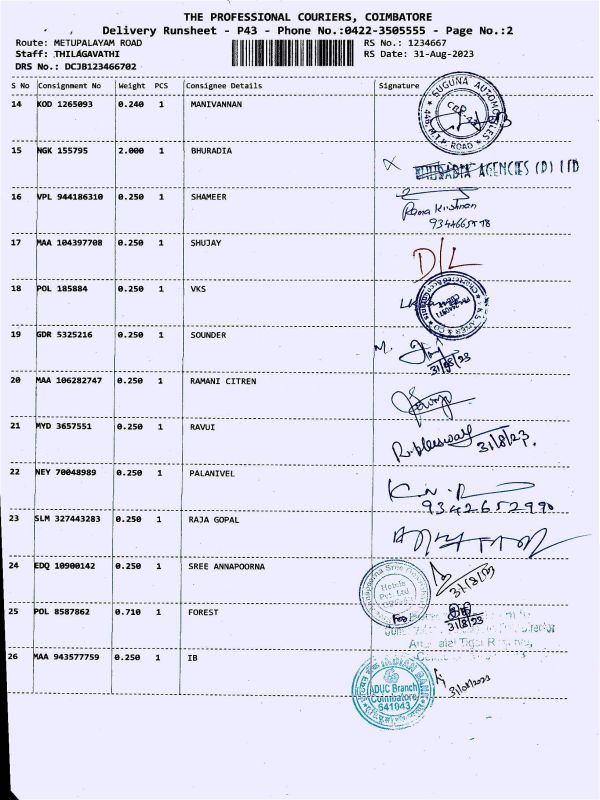 THE PROFESSIONAL COURIERS, COIMBATORE
Delivery Runsheet - P43 - Phone No.:0422-3505555 - Page No.:2
Route: METUPALAYAM ROAD RS No.: 1234667
Staff: THILAGAVATHI RS Date: 31-Aug-2023
DRS No.: DCJB123466702
S No Consignment No Weight PCS Consignee Details Signature
14 KOD 1265093 0.240 1 MANIVANNAN
SUGUNA AUTOMOBILES
M.T.P. ROAD
15 NGK 155795 2.000 1 BHURADIA
BHURADIA AGENCIES (P) LTD
16 VPL 944186310 0.250 1 SHAMEER
Rama Krishnan
17 MAA 104397708 0.250 1 SHUJAY
D/L
18 POL 185884 0.250 1 VKS
19 GDR 5325216 0.250 1 SOUNDER
M.
31/8/23
20 MAA 106282747 0.250 1 RAMANI CITREN
21 MYD 3657551 0.250 1 RAVUI
31/8/23.
22 NEY 70048989 0.250 1 PALANIVEL
9342652990
23 SLM 327443283 0.250 1 RAJA GOPAL
24 EDQ 10900142 0.250 1 SREE ANNAPOORNA
Hotels
Pvt. Ltd
31/8/23
25 POL 8587862 0.710 1 FOREST
31/8/23
26 MAA 943577759 0.250 1 IB
INDIAN BANK
ADUC Branch
Coimbatore
641043
31/08/2023